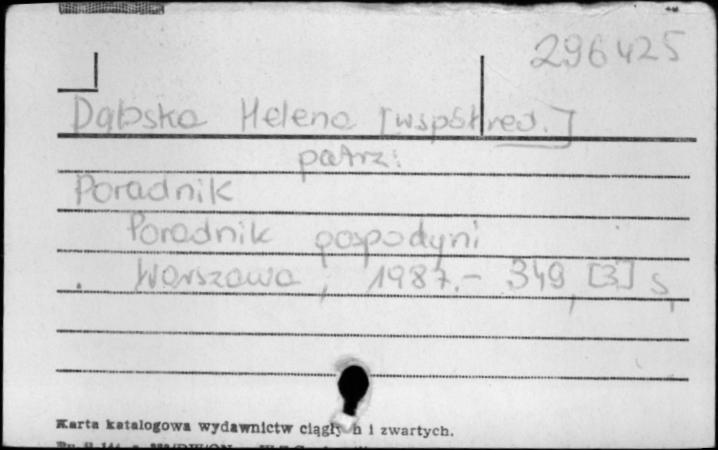 296425
Dąbska Helena [współred.]
patrz:
Poradnik
Poradnik gospodyni
Warszawa, 1987.- 349, [3] s,
Karta katalogowa wydawnictw ciągły h i zwartych.